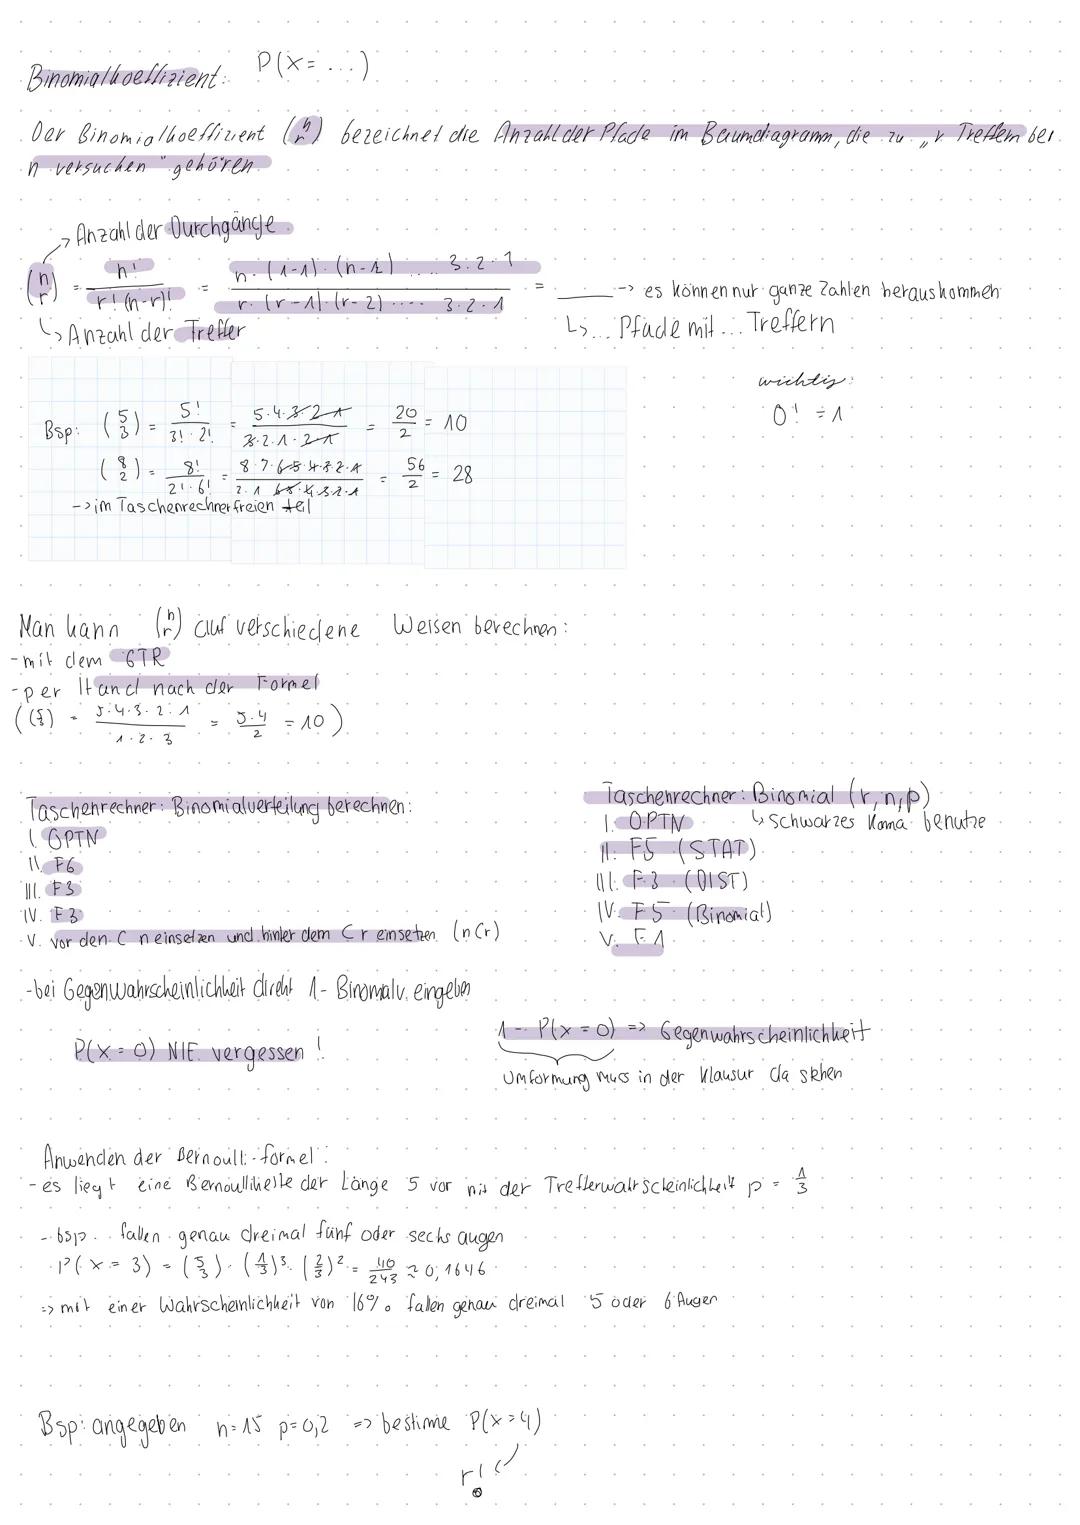 Binomialkoeffizient: P(X= ...)
Der Binomialkoeffizient (n r) bezeichnet die Anzahl der Pfade im Baumdiagramm, die zu „r Treffern bei
n versuchen" gehören.
-> Anzahl der Durchgänge
(n r) = n! / r!(n-r)! = n·(1-1)·(n-2)....3·2·1 / r·(r-1)·(r-2)....3·2·1 = ___ -> es können nur ganze Zahlen herauskommen
↳ Anzahl der Treffer
↳... Pfade mit ... Treffern
wichtig:
0! = 1
Bsp: (5 3) = 5! / 3!·2! = 5·4·3·2·1 / 3·2·1·2·1 = 20/2 = 10
(8 2) = 8! / 2!·6! = 8·7·6·5·4·3·2·1 / 2·1·6·5·4·3·2·1 = 56/2 = 28
-> im Taschenrechnerfreien teil
Man kann (n r) auf verschiedene Weisen berechnen:
- mit dem GTR
- per Hand nach der Formel
((5 3) = 5·4·3·2·1 / 1·2·3 = 5·4 / 2 = 10)
Taschenrechner: Binomialverteilung berechnen:
I. OPTN
II. F6
III. F3
IV. F3
V. vor den C n einsetzen und hinter dem C r einsetzen (nCr)
Taschenrechner: Binomial (r,n,p)
↳ schwarzes Komma benutze
I. OPTN
II. F5 (STAT)
III. F3 (DIST)
IV. F5 (Binomial)
V. F1
- bei Gegenwahrscheinlichkeit direkt 1- Binomalv. eingeben
P(X = 0) NIE vergessen !
1 - P(x = 0) => Gegenwahrscheinlichkeit
Umformung muss in der Klausur da stehen
Anwenden der Bernoulli-formel:
- es liegt eine Bernoullikette der Länge 5 vor mit der Trefferwahrscheinlichkeit p = 1/3
- bsp. fallen genau dreimal fünf oder sechs augen
P(x = 3) = (5 3)·(1/3)³·(2/3)² = 40/243 ≈ 0,1646
=> mit einer Wahrscheinlichkeit von 16% fallen genau dreimal 5 oder 6 Augen
Bsp: angegeben n=15 p=0,2 => bestimme P(X=4)
r!